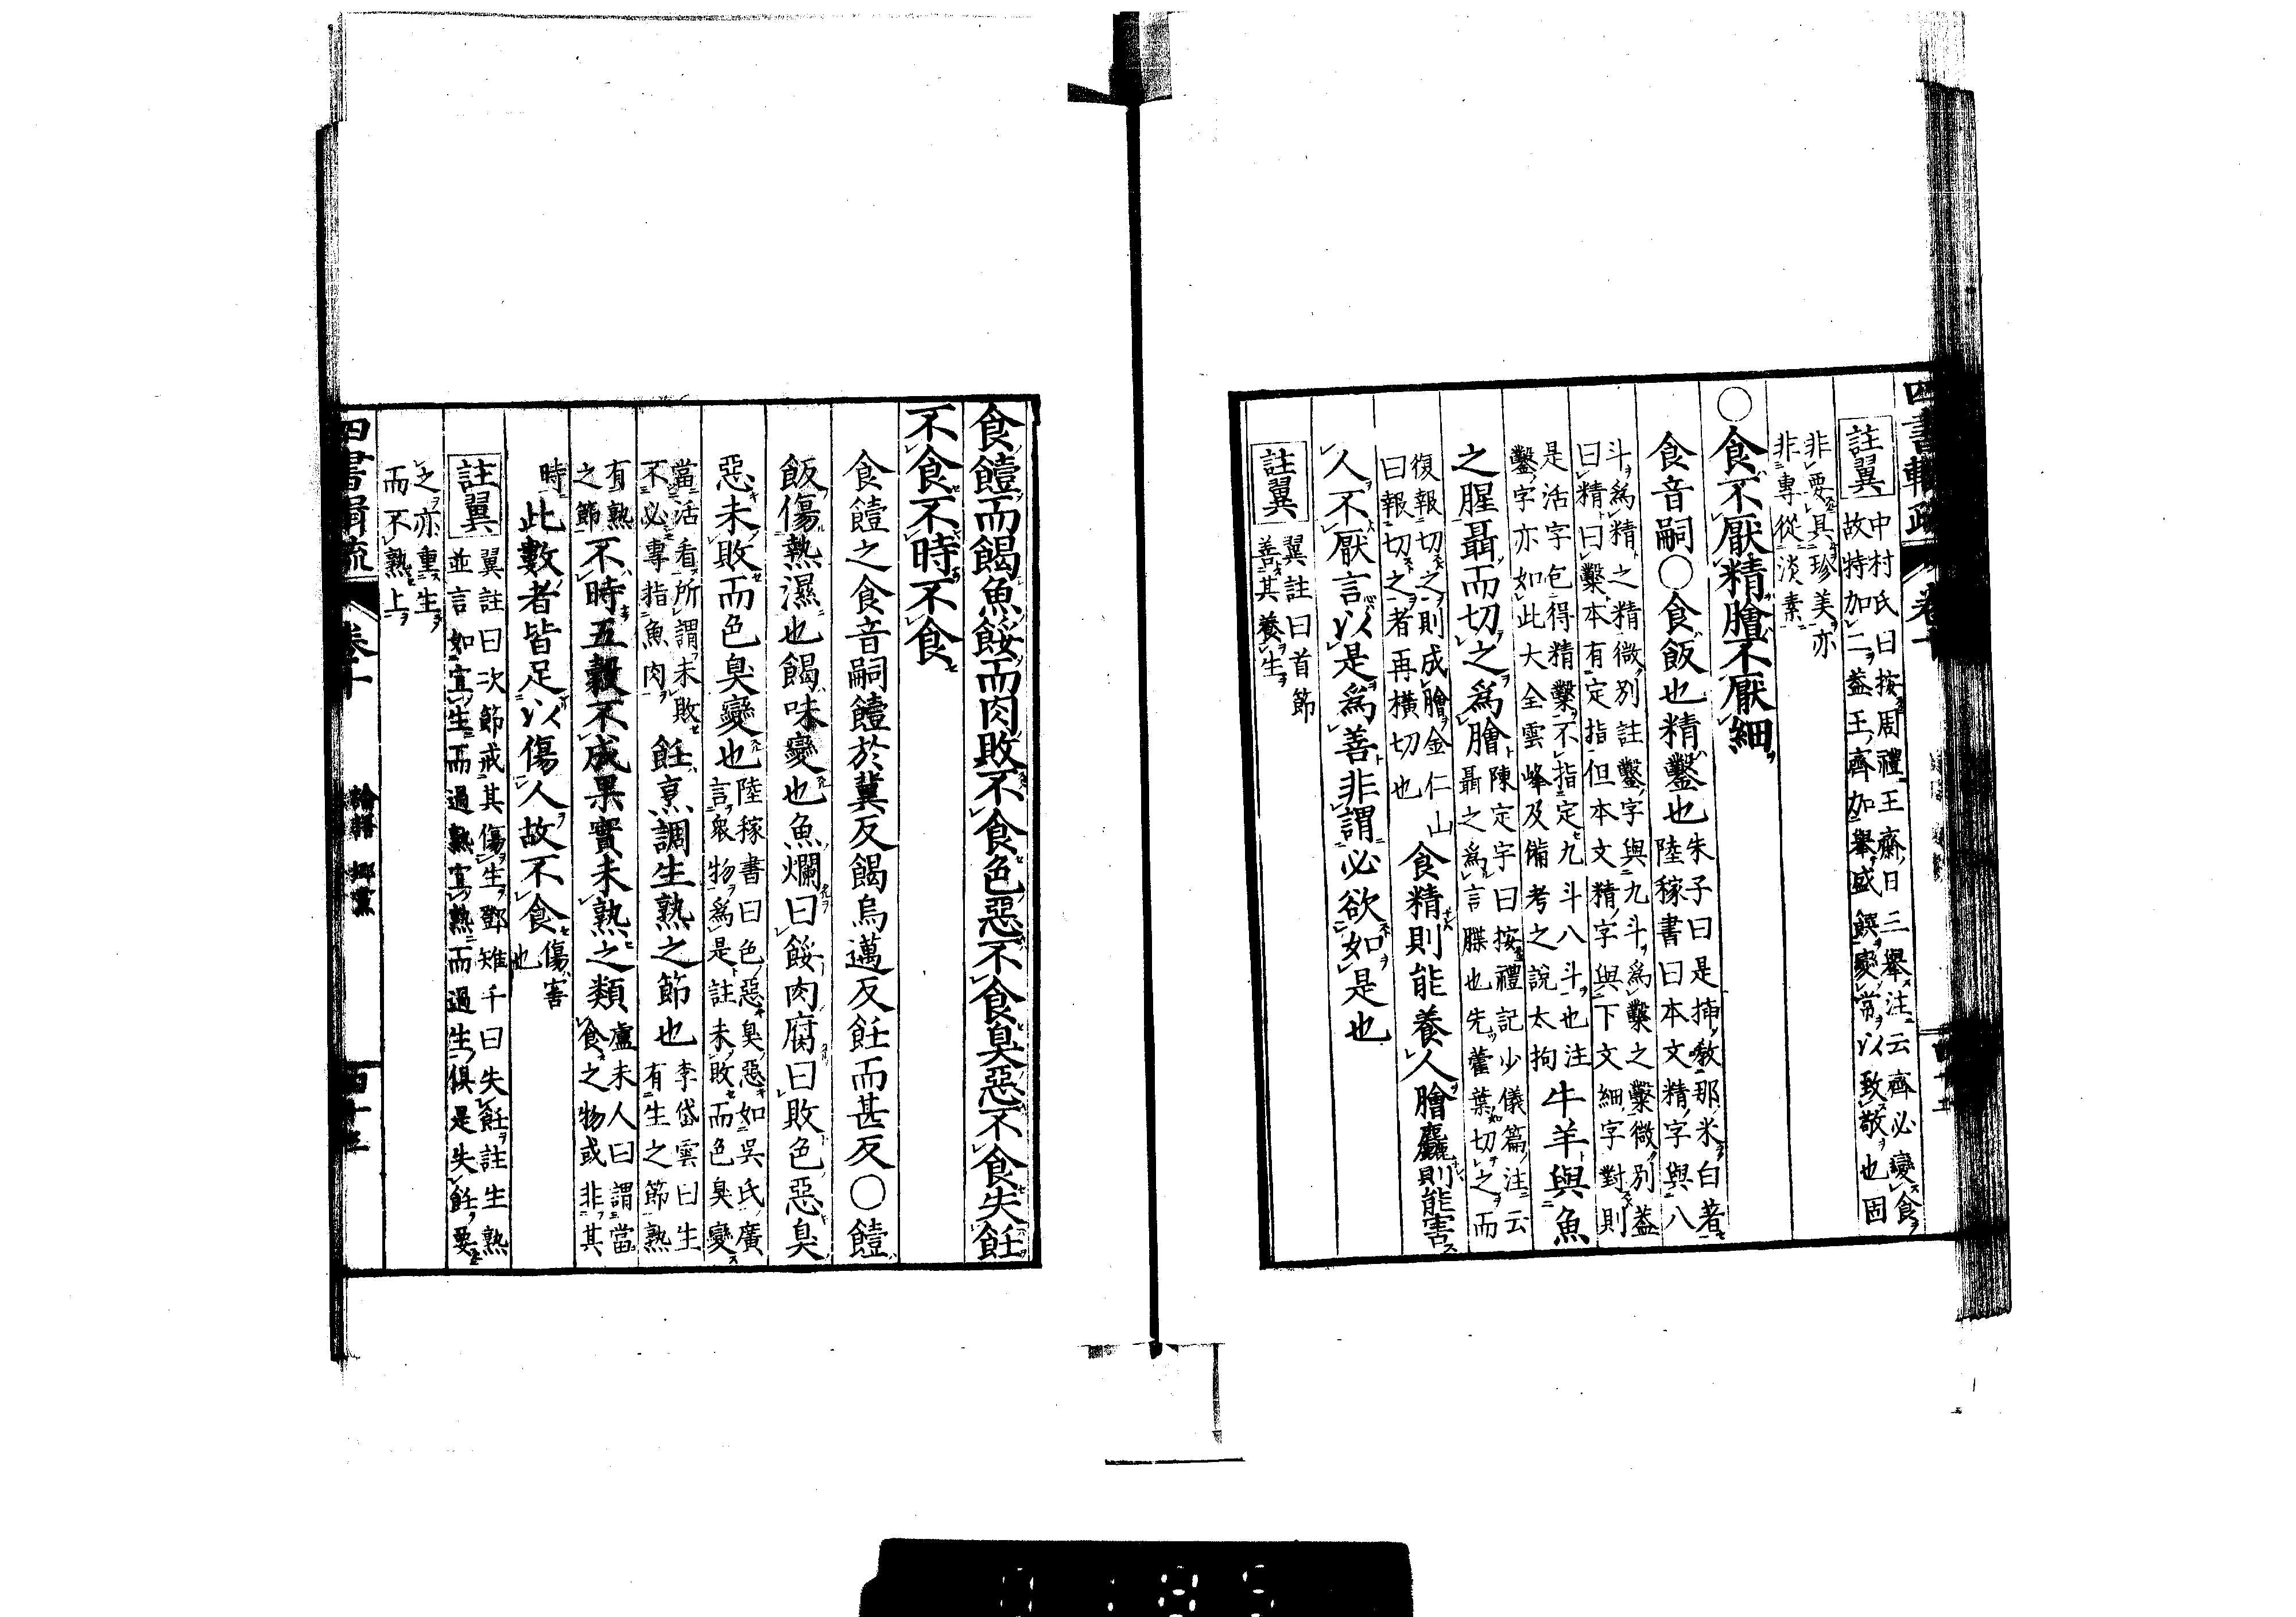 四書輯疏
註翼
中村氏曰按周禮王齋日三舉注云齊必變食
故特加二盖王齊加舉盛饌變常以致敬也固
非要具珍美亦
非專從淡素
○食不厭精膾不厭細
食音嗣○食飯也精鑿也
朱子曰是揷敎那米白著
陸稼書曰本文精字與八
斗爲精之精微別註鑿字與九斗爲鑿之鑿微別盖
曰精曰鑿本有定指但本文精字與下文細字對則
是活字包得精鑿不指定九斗八斗也注
鑿字亦如此大全雲峰及備考之說太拘
牛羊與魚
之腥聶而切之爲膾
陳定宇曰按禮記少儀篇注云
聶之爲言牒也先藿葉切之而
復報切之則成膾金仁山
曰報切之者再橫切也
食精則能養人膾麤則能害
人不厭言以是爲善非謂必欲如是也
註翼
翼註曰首節
善其養生
食饐而餲魚餒而肉敗不食色惡不食臭惡不食失飪
不食不時不食
食饐之食音嗣饐於冀反餲烏邁反飪而甚反○饐
飯傷熱濕也餲味變也魚爛曰餒肉腐曰敗色惡臭
惡未敗而色臭變也
陸稼書曰色惡臭惡如吳氏廣
言衆物爲是註未敗而色臭變
當活看所謂未敗
不必專指魚肉
飪烹調生熟之節也
李岱雲曰生
有生之節熟
有熟
之節
不時五穀不成果實未熟之類
盧未人曰謂當
食之物或非其
時
此數者皆足以傷人故不食
傷害
也
註翼
翼註曰次節戒其傷生鄧雉千曰失飪註生熟
並言如宜生而過熟宜熟而過生俱是失飪要
之亦重生
而不熟上
四書輯疏
卷十
論語 鄕黨
四十三